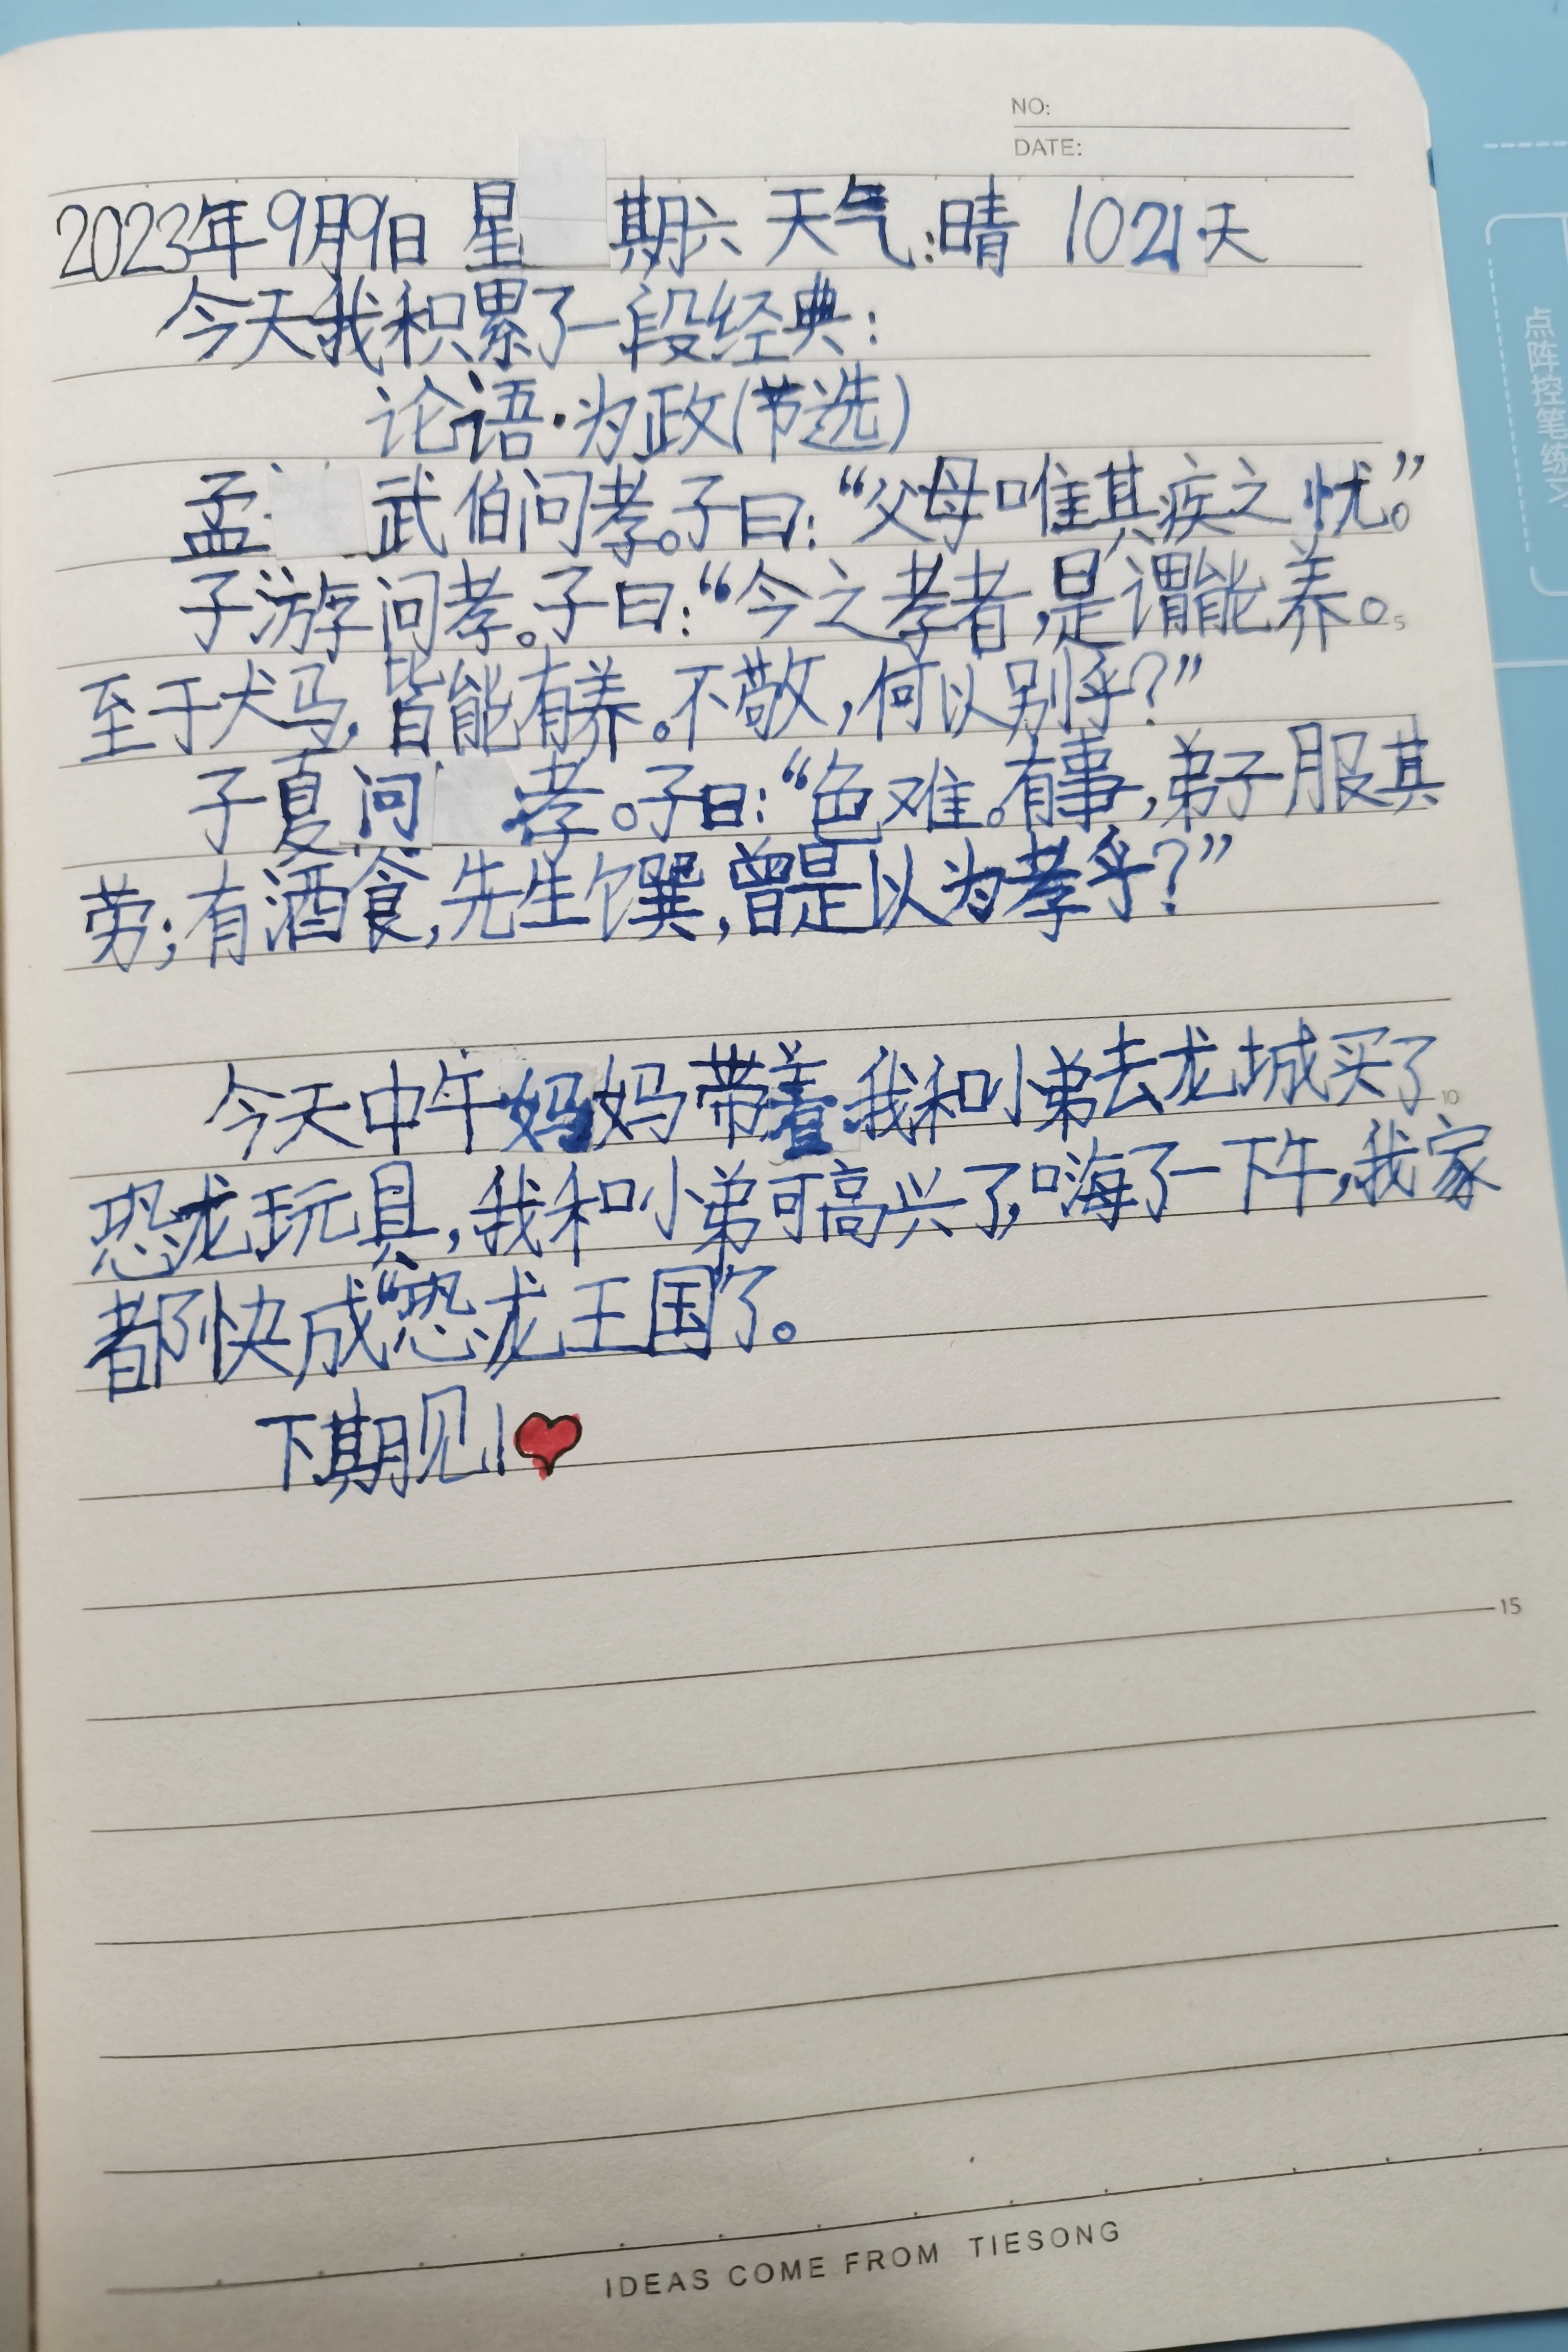 NO:
DATE:
2023年9月9日 星期六 天气:晴 1021天
今天我积累了一段经典:
论语·为政(节选)
孟武伯问孝。子曰:“父母唯其疾之忧。”
子游问孝。子曰:“今之孝者,是谓能养。
5
至于犬马,皆能有养。不敬,何以别乎?”
子夏问孝。子曰:“色难。有事,弟子服其
劳;有酒食,先生馔,曾是以为孝乎?”
今天中午妈妈带着我和小弟去龙城买了
10
恐龙玩具,我和小弟可高兴了,嗨了一下午,我家
都快成“恐龙王国”了。
下期见!
15
IDEAS COME FROM TIESONG
点阵控笔练习